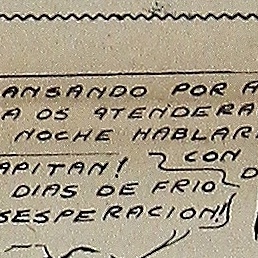 ANSANDO POR A
A OS ATENDERA
NOCHE HABLAR
APITAN! CON
DIAS DE FRIO D
SESPERACION!